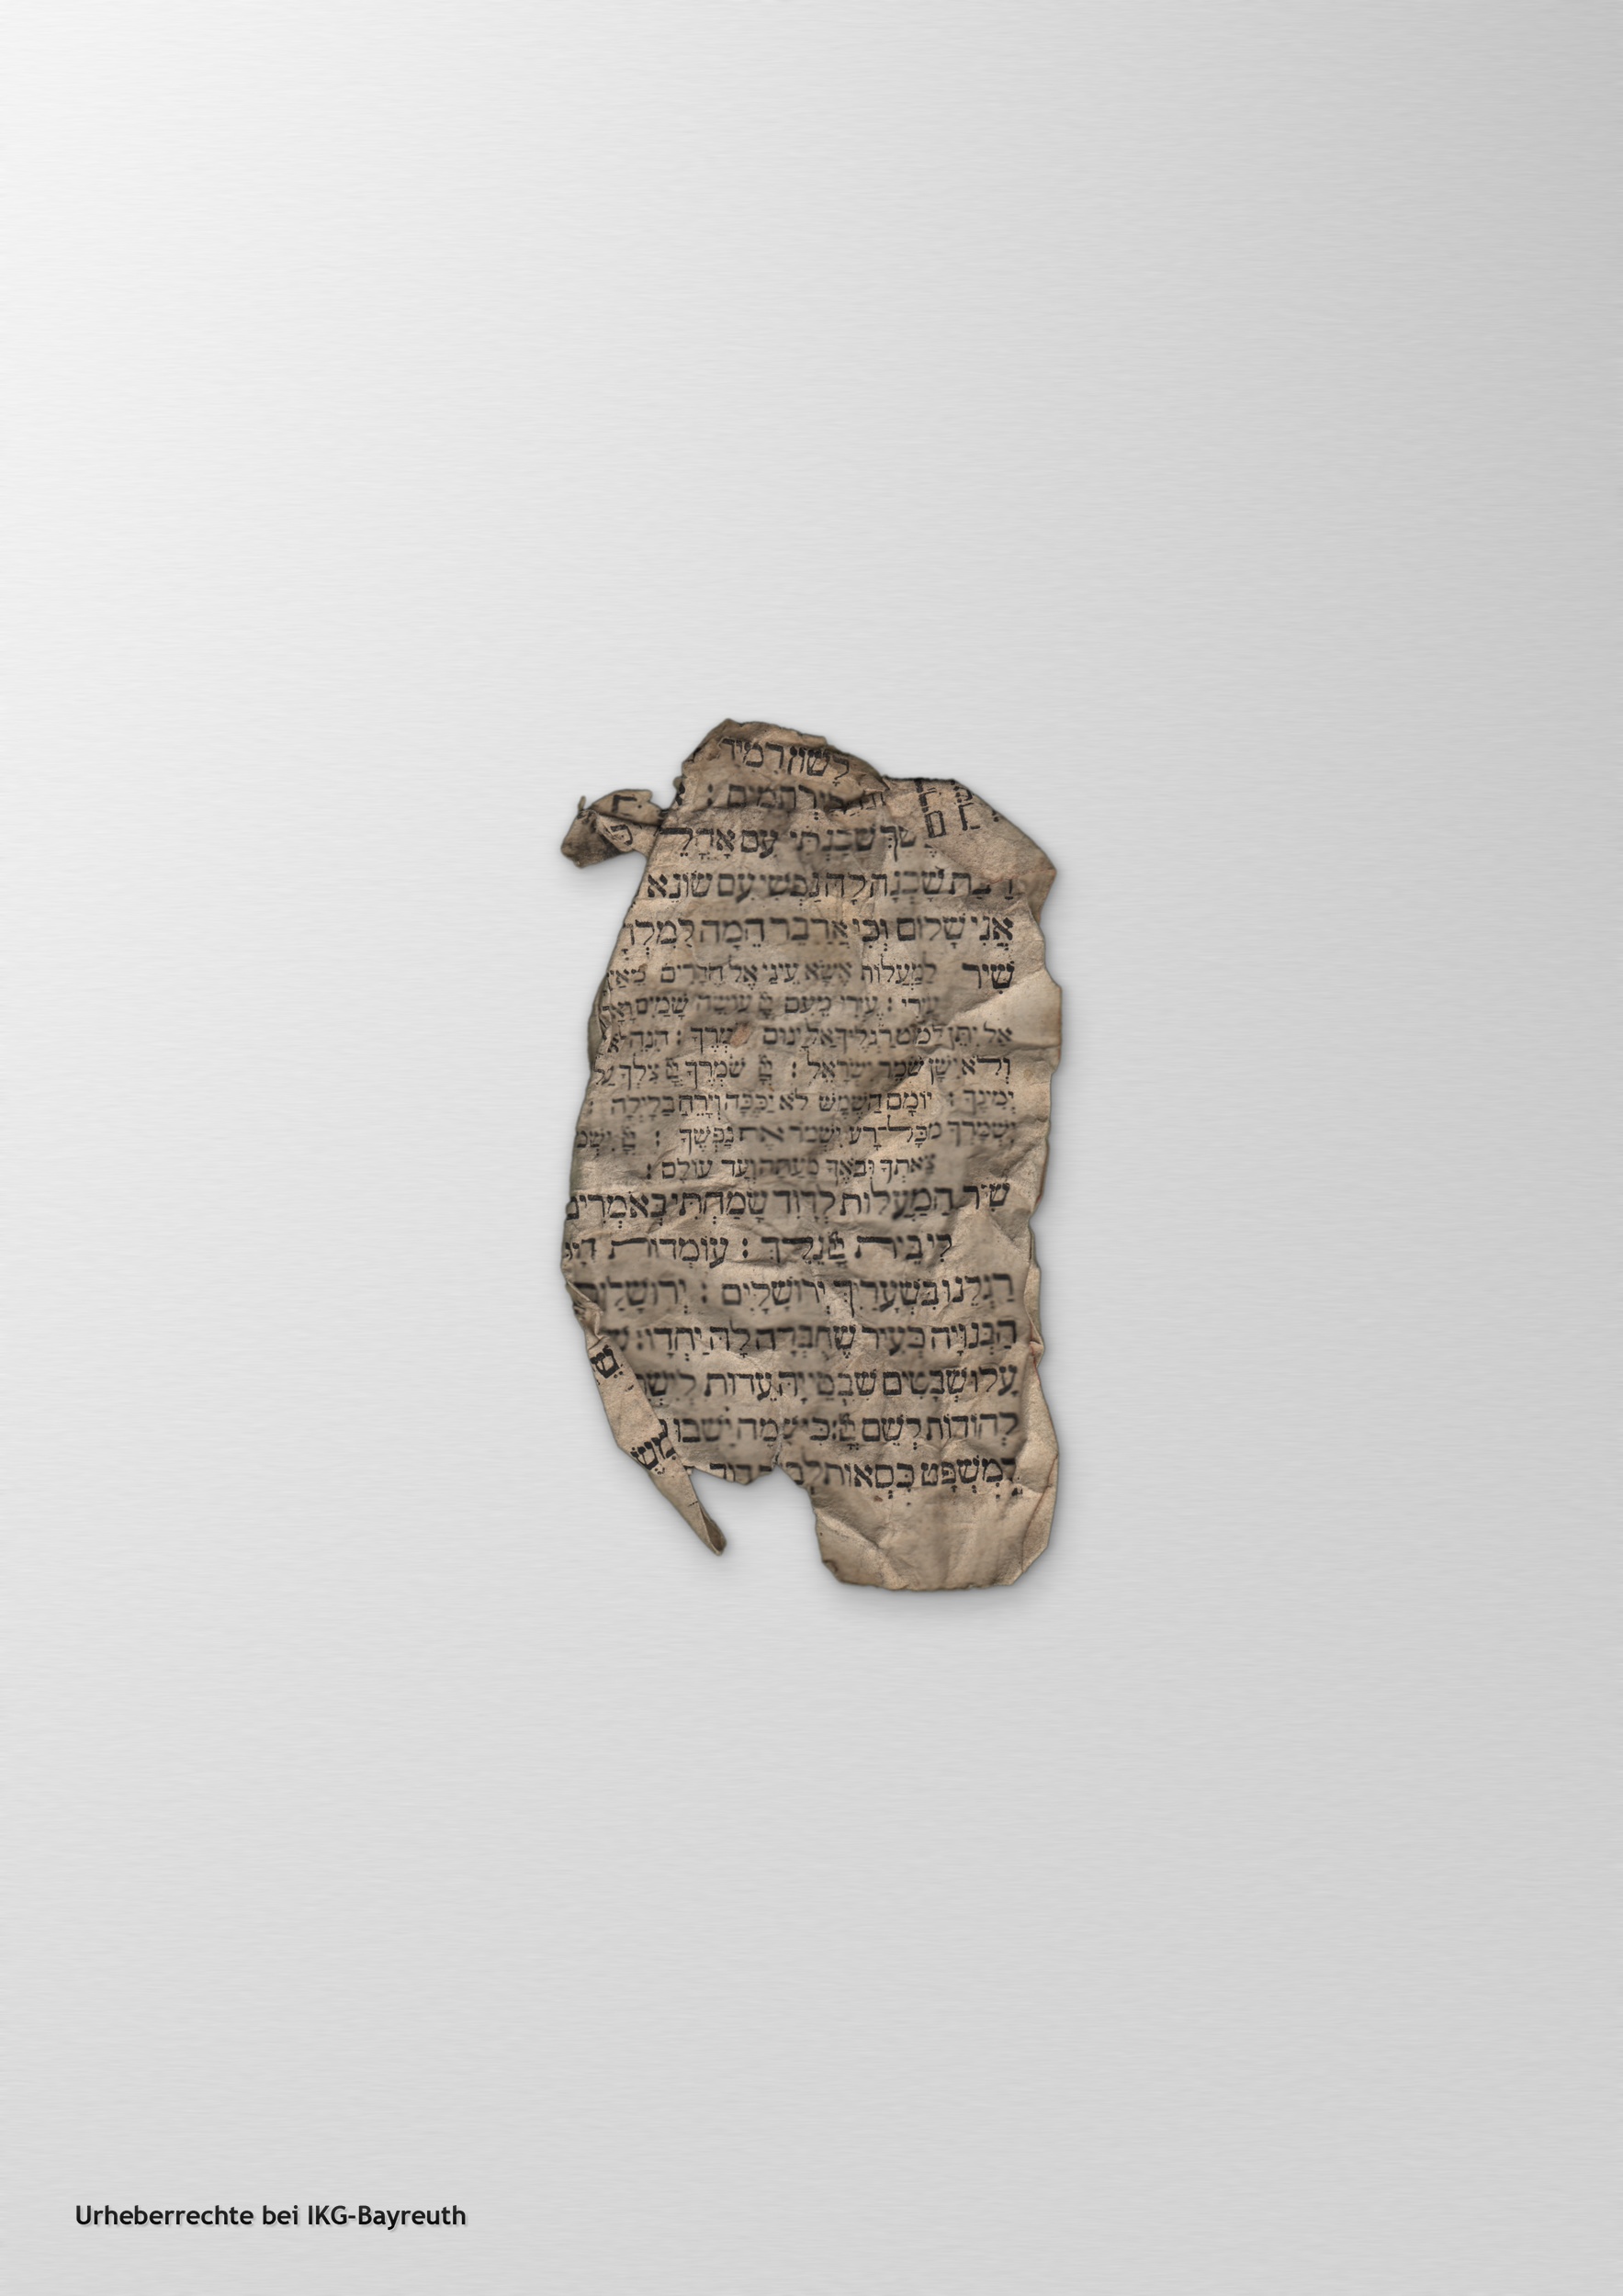 : 
שָׁכַנְתִּי עִם אָהֳלֵי
שָׁכְנָה לָּהּ נַפְשִׁי עִם שׂוֹנֵא
אֲנִי שָׁלוֹם וְכִי אֲדַבֵּר הֵמָּה לַמִּלְחָ
שִׁיר לַמַּעֲלוֹת אֶשָּׂא עֵינַי אֶל הֶהָרִים מֵאַיִ
: עֶזְרִי מֵעִם יְיָ עוֹשֵׂה שָׁמַיִם וָאָ
אַל יִתֵּן לַמּוֹט רַגְלֶיךָ אַל יָנוּם : הִנֵּה
וְלֹא יִישָׁן שֹׁמֵר יִשְׂרָאֵל : יְיָ שֹׁמְרֶךָ יְיָ צִלְּךָ עַל
יְמִינֶךָ : יוֹמָם הַשֶּׁמֶשׁ לֹא יַכֶּכָּה וְיָרֵחַ בַּלָּיְלָה
יִשְׁמָרְךָ מִכָּל־רָע יִשְׁמֹר אֶת נַפְשֶׁךָ : יְיָ יִשְׁמ
צֵאתְךָ וּבֹאֶךָ מֵעַתָּה וְעַד עוֹלָם :
שִׁיר הַמַּעֲלוֹת לְדָוִד שָׂמַחְתִּי בְּאֹמְרִים
לִי בֵּית יְיָ נֵלֵךְ : עוֹמְדוֹת הָיוּ
רַגְלֵנוּ בִּשְׁעָרַיִךְ יְרוּשָׁלָיִם : יְרוּשָׁלַיִם
הַבְּנוּיָה כְּעִיר שֶׁחֻבְּרָה לָּהּ יַחְדָּו : שֶׁ
עָלוּ שְׁבָטִים שִׁבְטֵי יָהּ עֵדוּת לְיִשְׂ
לְהוֹדוֹת לְשֵׁם יְיָ : כִּי שָׁמָּה יָשְׁבוּ
לְמִשְׁפָּט כִּסְאוֹת דָּוִד
Urheberrechte bei IKG-Bayreuth